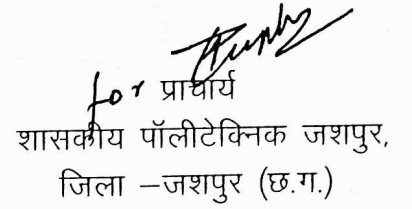 for प्राचार्य
शासकीय पॉलीटेक्निक जशपुर,
जिला –जशपुर (छ.ग.)